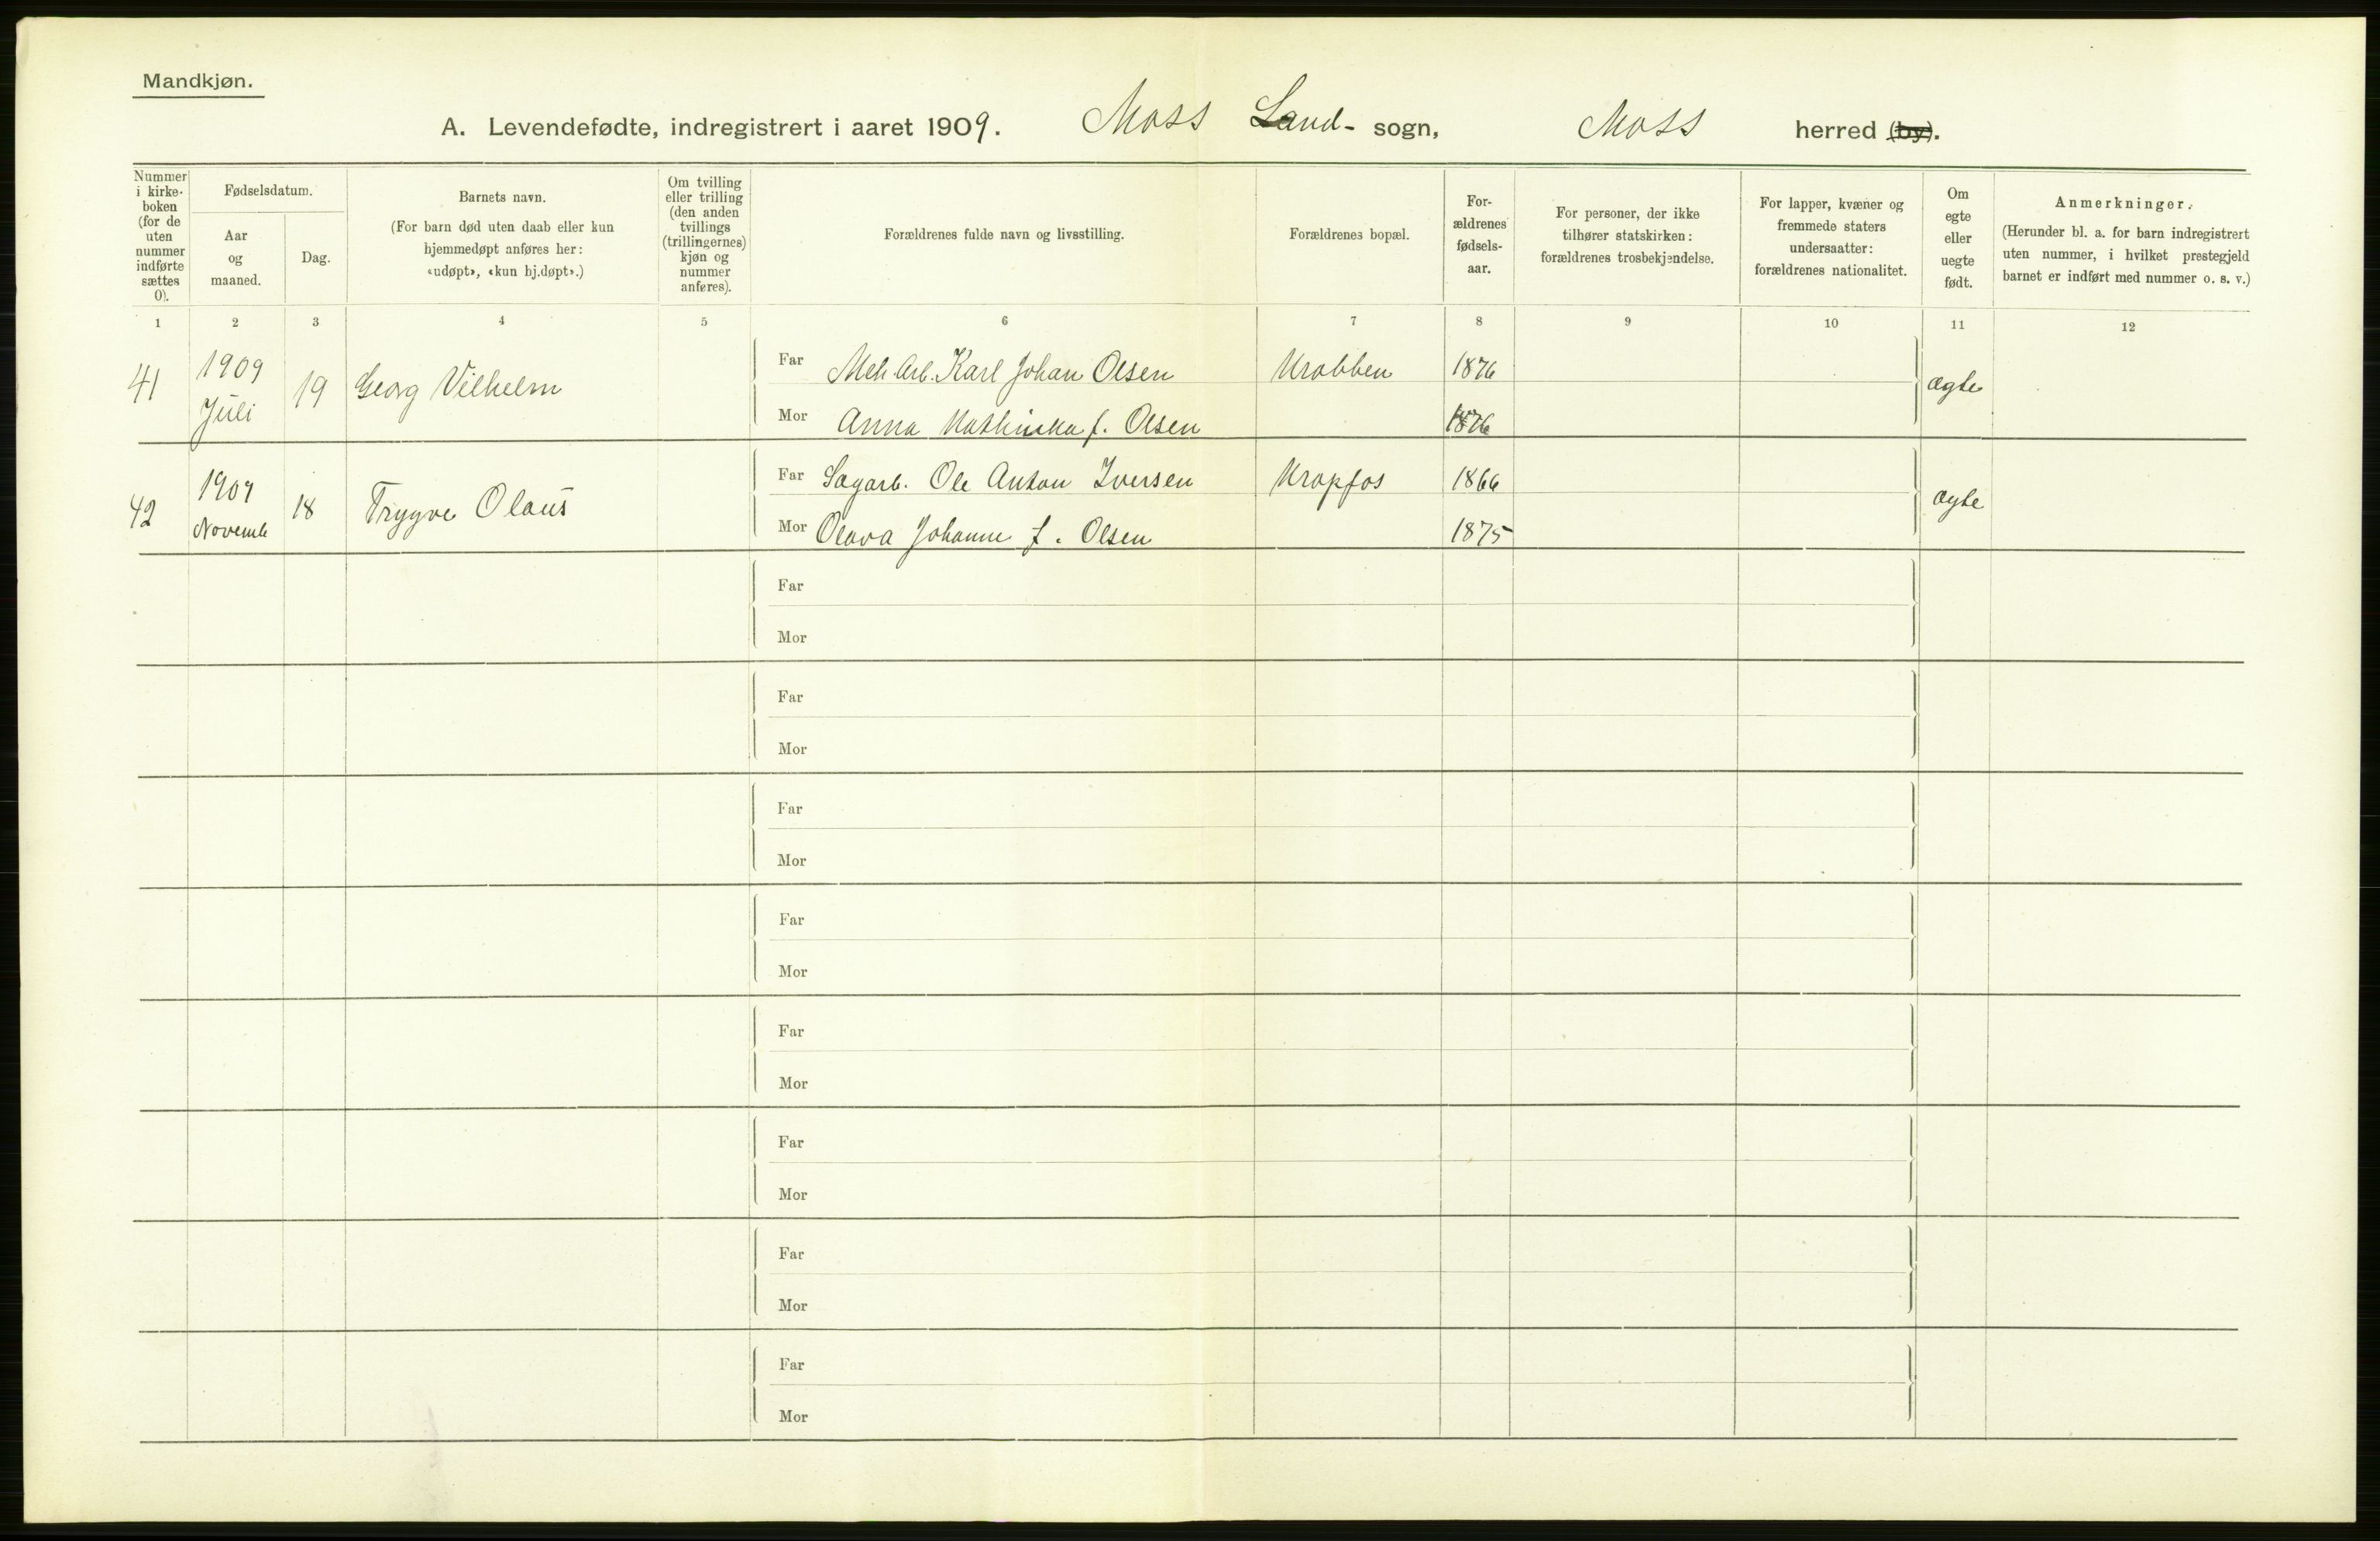 Mandkjøn.
A. Levendefødte, indregistrert i aaret 1909. Moss Land- sogn, Moss herred (by).
Nummer i kirke-boken (for de uten nummer indførte sættes 0).
Fødselsdatum.
Aar og maaned.
Dag.
Barnets navn.
(For barn død uten daab eller kun hjemmedøpt anføres her: «udøpt», «kun hj.døpt».)
Om tvilling eller trilling (den anden tvillings (trillingernes) kjøn og nummer anføres).
Forældrenes fulde navn og livsstilling.
Forældrenes bopæl.
For-ældrenes fødsels-aar.
For personer, der ikke tilhører statskirken: forældrenes trosbekjendelse.
For lapper, kvæner og fremmede staters undersaatter: forældrenes nationalitet.
Om egte eller uegte født.
Anmerkninger.
(Herunder bl. a. for barn indregistrert uten nummer, i hvilket prestegjeld barnet er indført med nummer o. s. v.)
1 2 3 4 5 6 7 8 9 10 11 12
41 1909 Juli 19 Georg Vilhelm Far Mek. Arb. Karl Johan Olsen Krabben 1876 ægte
Mor Anna f. Olsen 1876
42 1909 Novemb 18 Trygve Olaus Far Sagarb. Ole Anton Iversen Krapfos 1866 ægte
Mor Olava Johanne f. Olsen 1875
Far
Mor
Far
Mor
Far
Mor
Far
Mor
Far
Mor
Far
Mor
Far
Mor
Far
Mor